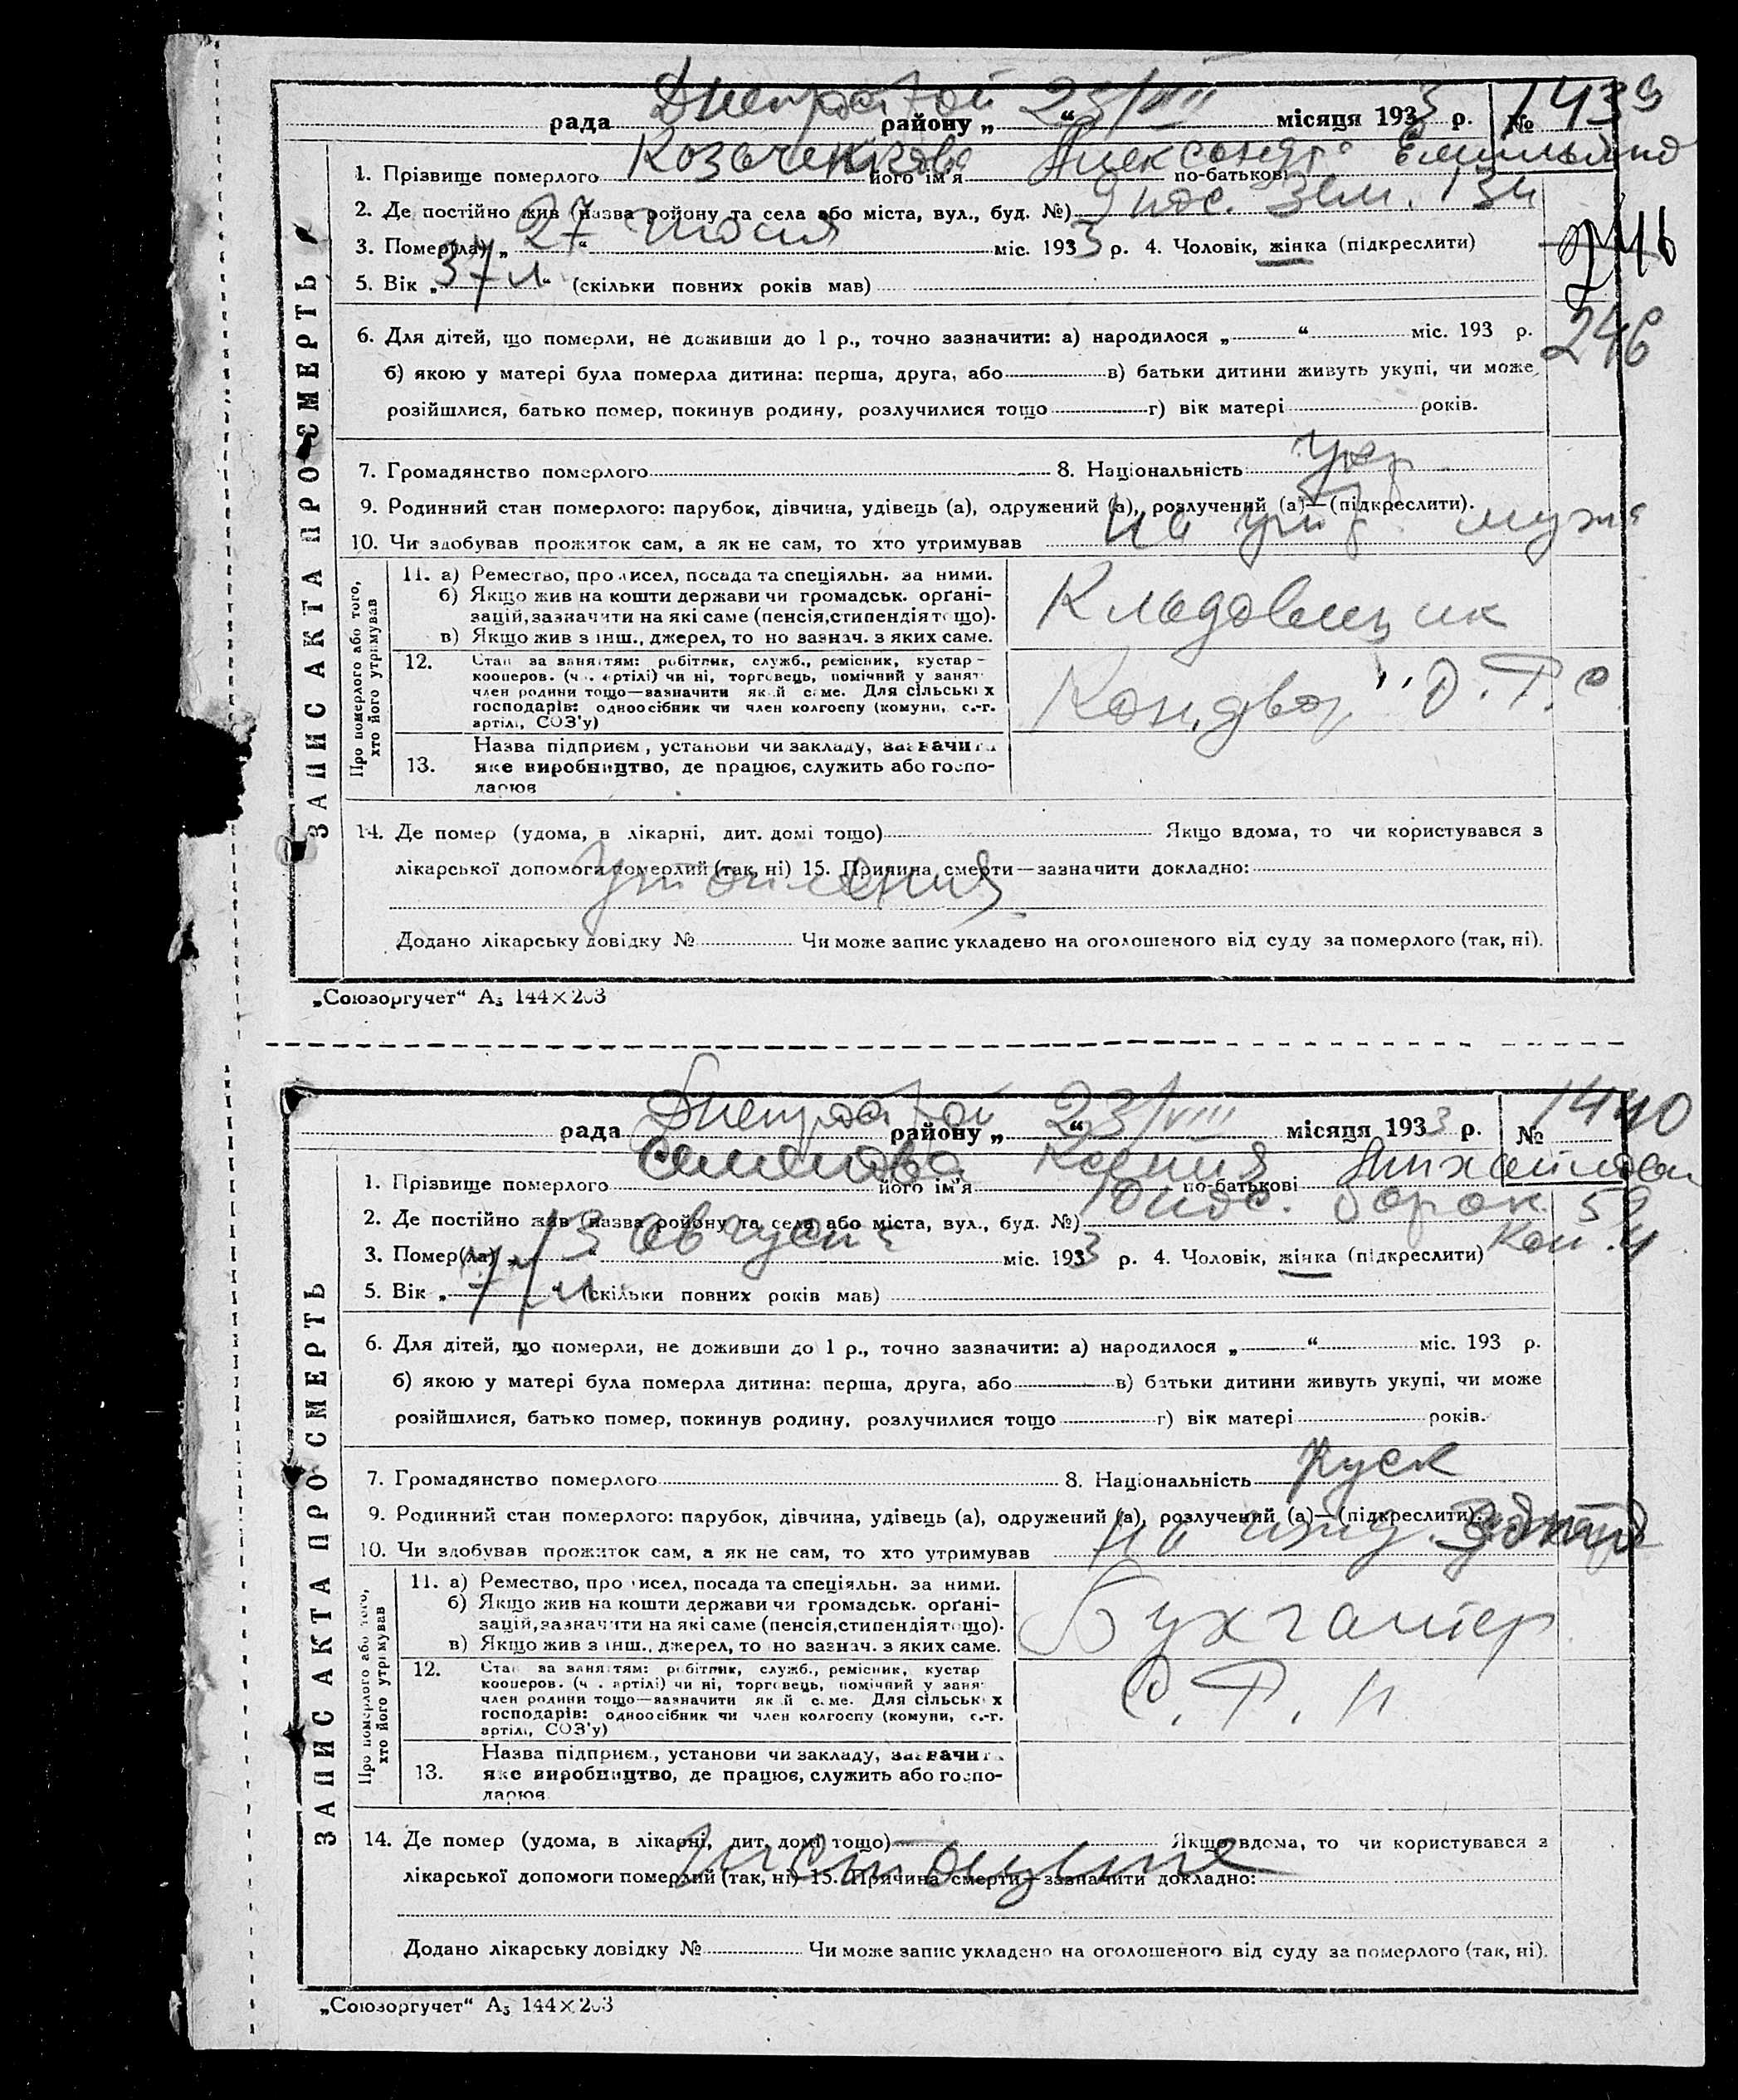 Днепрострой 23/VIII
рада районy „ “ місяця 1933 р. № 1439
Козаченкова Александра
1. Прізвище померлого його ім'я по-батькові
9 пос. Зем. 13
2. Де постійно жив (назва ройону та села або міста, вул., буд. №)
3. Помер(ла) „ 27 “ июля міс. 1933 р. 4. Чоловік, жінка (підкреслити)
5. Вік „ 37 л “ (скільки повних років мав)
246
6. Для дітей, що померли, не доживши до 1 р., точно зазначити: а) народилося „ “ міс. 193 р.
б) якою у матері була померла дитина: перша, друга, або в) батьки дитини живуть укупі, чи може,
розійшлися, батько помер, покинув родину, розлучилися тощо г) вік матері років.
7. Громадянство померлого 8. Національність Укр
9. Родинний стан померлого: парубок, дівчина, удівець (а), одружений (а), розлучений (а)—(підкреслити).
10. Чи здобував прожиток сам, а як не сам, то хто утримував на ижд. мужа
ЗАПИС АКТА ПРО СМЕРТЬ
Про померлого або того, хто його утримував
11. а) Ремество, промисел, посада та спеціяльн. за ними.
б) Якщо жив на кошти держави чи громадськ. орґані-
зацій, зазначити на які саме (пенсія, стипендія тощо).
в) Якщо жив з інш., джерел, то но зазнач. з яких саме.
Кладовщик
12. Стан за заняттям: робітник, служб., ремісник, кустар-
кооперов. (чл. артілі) чи ні, торговець, помічний у занят.
член родини тощо—зазначити який саме. Для сільських
господарів: одноосібник чи член колгоспу (комуни, с.-г.
артілі, СОЗ'у)
13. Назва підприєм., установи чи закладу, зазначити
яке виробництво, де працює, служить або госпо-
дарює
14. Де помер (удома, в лікарні, дит. домі тощо) Якщо вдома, то чи користувався з
лікарської допомоги померлий (так, ні) 15. Причина смерти—зазначити докладно:
утопления
Додано лікарську довідку № Чи може запис укладено на оголошеного від суду за померлого (так, ні).
„Союзоргучет“ А₅ 144×203
Днепрострой 23/VIII
рада районy „ “ місяця 1933 р. № 1440
Ксения Михайловн
1. Прізвище померлого його ім'я по-батькові
10 пос. барак 59
2. Де постійно жив (назва ройону та села або міста, вул., буд. №)
ком. 4
3. Помер(ла) „ 13 “ августа міс. 1933 р. 4. Чоловік, жінка (підкреслити)
5. Вік „ “ (скільки повних років мав)
6. Для дітей, що померли, не доживши до 1 р., точно зазначити: а) народилося „ “ міс. 193 р.
б) якою у матері була померла дитина: перша, друга, або в) батьки дитини живуть укупі, чи може
розійшлися, батько помер, покинув родину, розлучилися тощо г) вік матері років.
7. Громадянство померлого 8. Національність Руск
9. Родинний стан померлого: парубок, дівчина, удівець (а), одружений (а), розлучений (а)—(підкреслити).
10. Чи здобував прожиток сам, а як не сам, то хто утримував на ижд.
ЗАПИС АКТА ПРО СМЕРТЬ
Про померлого або того, хто його утримував
11. а) Ремество, промисел, посада та спеціяльн. за ними.
б) Якщо жив на кошти держави чи громадськ. орґані-
зацій, зазначити на які саме (пенсія, стипендія тощо).
в) Якщо жив з інш., джерел, то но зазнач. з яких саме.
Бухгалтер
12. Стан за заняттям: робітник, служб., ремісник, кустар
кооперов. (чл. артілі) чи ні, торговець, помічний у занят.
член родини тощо—зазначити який саме. Для сільських
господарів: одноосібник чи член колгоспу (комуни, с.-г.
артілі, СОЗ'у)
13. Назва підприєм., установи чи закладу, зазначити
яке виробництво, де працює, служить або госпо-
дарює
14. Де помер (удома, в лікарні, дит. домі тощо) Якщо вдома, то чи користувався з
лікарської допомоги померлий (так, ні) 15. Причина смерти—зазначити докладно:
Истощение
Додано лікарську довідку № Чи може запис укладено на оголошеного від суду за померлого (так, ні).
„Союзоргучет“ А₅ 144×203